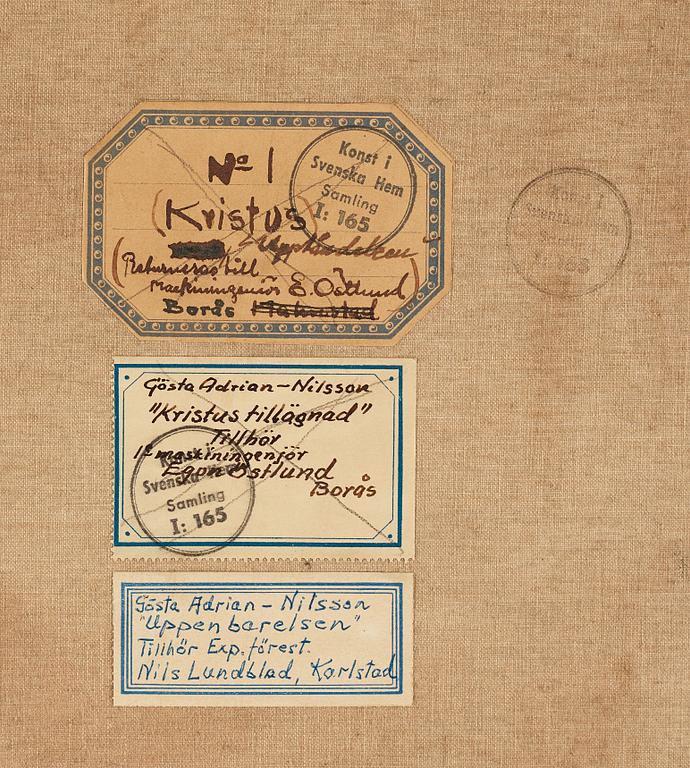 No 1
Konst i
Svenska Hem
Samling
I: 165
(Kristus)
(Returneras till
maskiningeniör E. Östlund)
Borås Halmstad
Konst i
Svenska Hem
Samling
I: 165
Gösta Adrian-Nilsson
"Kristus tillägnad"
Tillhör
1e maskiningenjör
Egon Östlund
Borås
Konst i
Svenska Hem
Samling
I: 165
Gösta Adrian-Nilsson
"Uppenbarelsen".
Tillhör Exp.förest.
Nils Lundblad, Karlstad